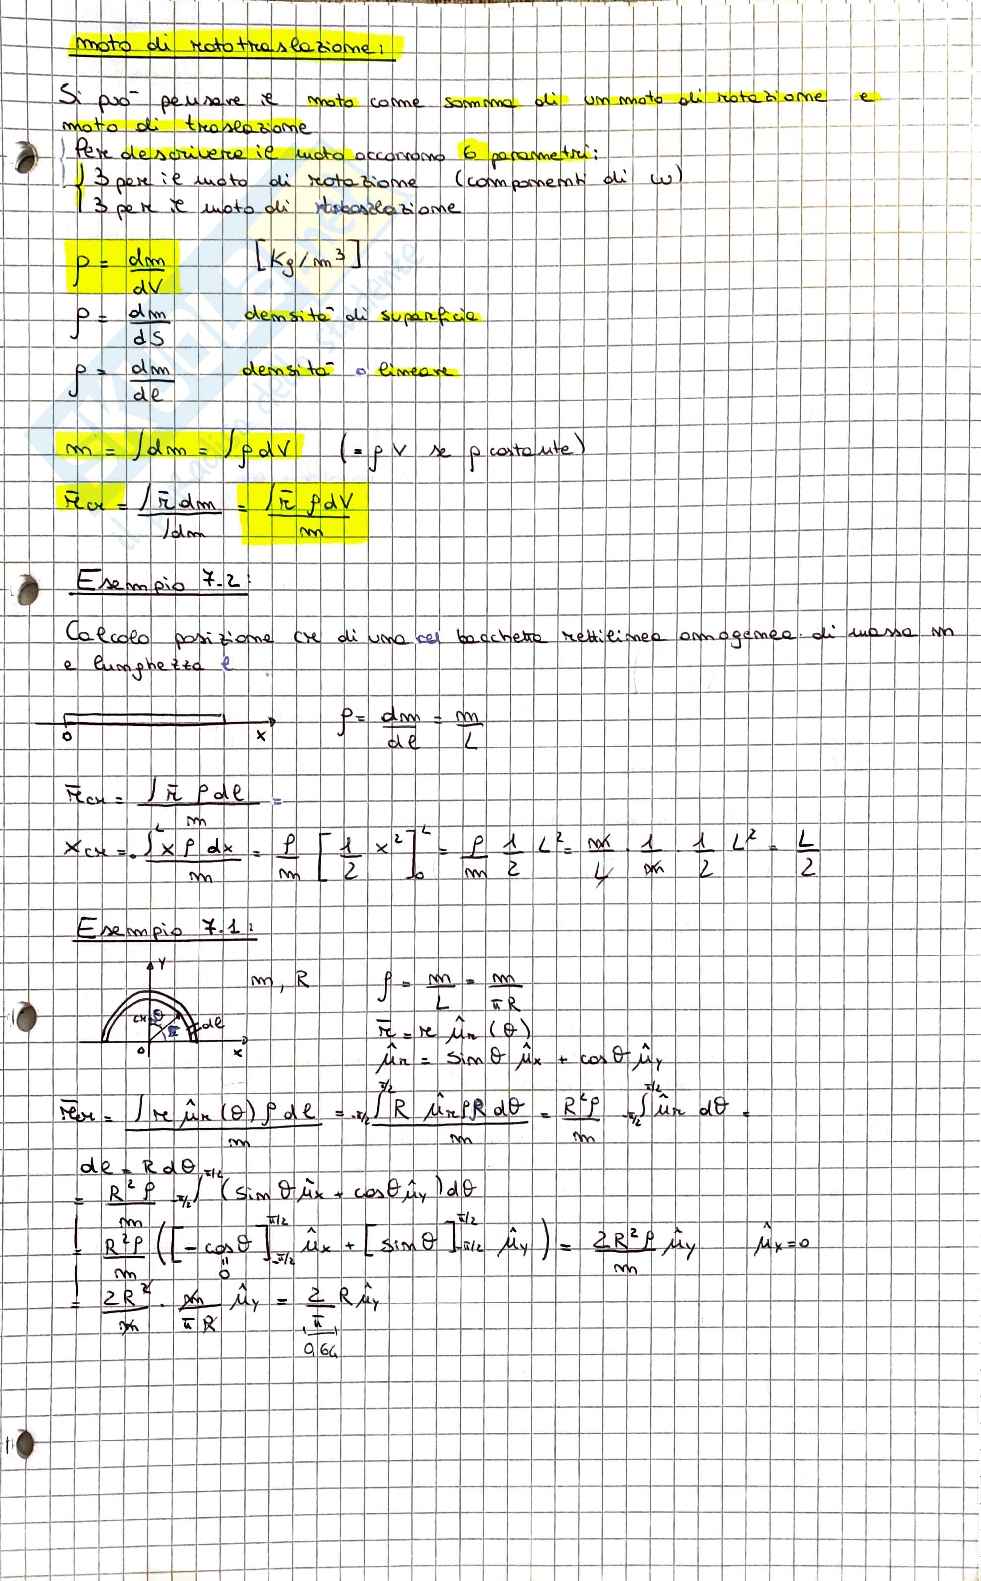 moto di rototraslazione:
Si può pensare il moto come somma di un moto di rotazione e
moto di traslazione
Per descrivere il moto occorrono 6 parametri:
3 per il moto di rotazione (componenti di ω)
3 per il moto di traslazione
ρ = dm/dV [Kg/m³]
ρ = dm/dS densità di superficie
ρ = dm/dl densità lineare
m = ∫dm = ∫ρdV (= ρV se ρ costante)
r̄cm = ∫r̄dm/∫dm = ∫r̄ ρdV/m
Esempio 7.2:
Calcolo posizione cm di una bacchetta rettilinea omogenea di massa m
e lunghezza l
0 x ρ = dm/dl = m/L
r̄cm = ∫r̄ ρdl/m =
xcm = ∫ᴸ x ρ dx/m = ρ/m [1/2 x²]₀ᴸ = ρ/m 1/2 L² = m/L · 1/m · 1/2 L² = L/2
Esempio 7.1:
y m, R ρ = m/L = m/πR
cm θ r̄ dl r̄ = r û_r (θ)
0 x û_r = sinθ û_x + cosθ û_y
r̄cm = ∫r û_r(θ) ρ dl/m = -π/2∫π/2 R û_r ρR dθ/m = R²ρ/m -π/2∫π/2 û_r dθ =
dl = R dθ
= R²ρ/m -π/2∫π/2 (sinθ û_x + cosθ û_y)dθ
= R²ρ/m ([-cosθ]-π/2 π/2 û_x + [sinθ]-π/2 π/2 û_y) = 2R²ρ/m û_y û_x=0
= 0
= 2R²/m · m/πR û_y = 2/π R û_y
0,64